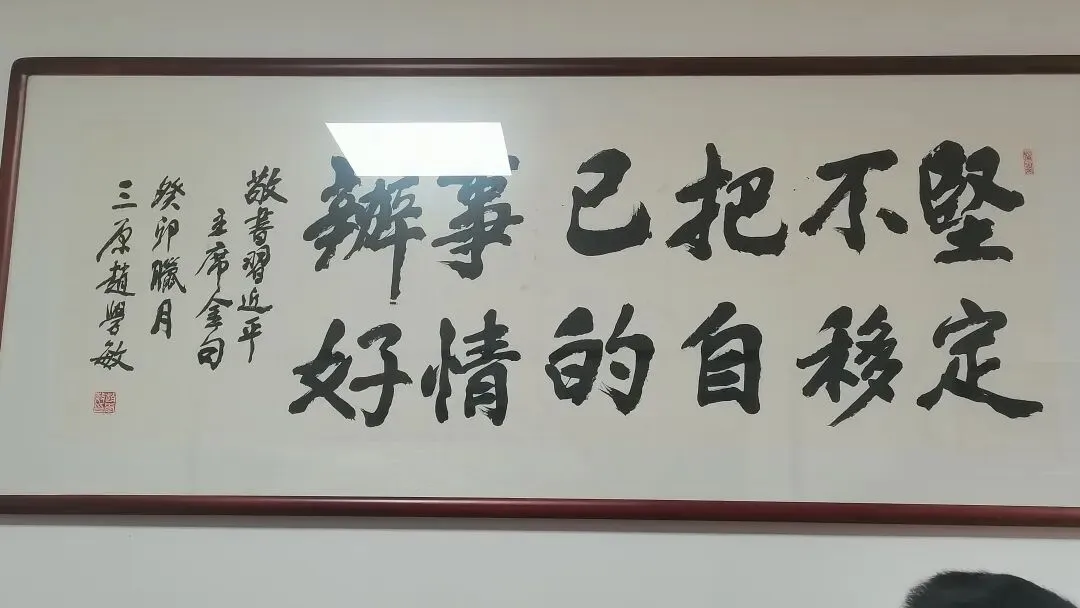 堅定
不移
把自
己的
事情
辦好
敬書習近平
主席金句
癸卯臘月
三原趙學敏